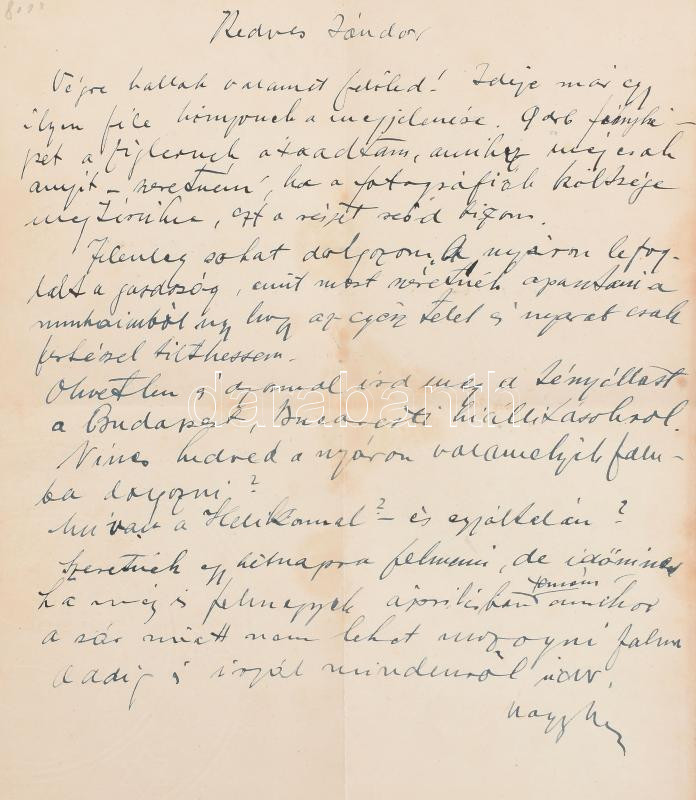 Kedves Sándor
Végre hallok valamit felőled! Ideje már egy
ilyen féle könyvnek a megjelenése. 9 drb fényké-
pet a Ziglernek átaadtam, amihez még csak
annyit – szeretném, ha a fotográfiák költsége
megtérülne, ezt a részét reád bizom.
Jelenleg sokat dolgozom, A nyáron lefog-
lalt a gazdaság, amit most szeretnék apasztani a
munkaimból ugy hogy az egész telet és nyarat csak
festéssel tölthessem.
Okvetlen s azonnal írd meg a tényállást
a Budapesti, Bucaresti kiállitásokrol.
Nincs kedved a nyáron valamelyik falu-
ba dolgozni?
Mi van a Helikonnal? – és egyáltalán?
Szeretnék egy hétnapra felmenni, de időm nincs
ha mégis felmegyek áprilisban amikor
a sár miatt nem lehet mozogni falun
addig is írjál mindenről
Nagy
darabanth